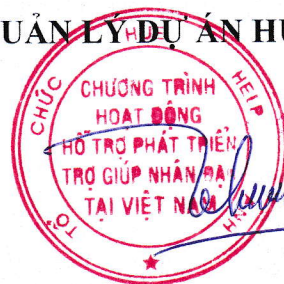 UẢN LÝ DỰ ÁN HU
TỔ CHỨC HUE HELP
CHƯƠNG TRÌNH
HOẠT ĐỘNG
HỖ TRỢ PHÁT TRIỂN
TRỢ GIÚP NHÂN ĐẠO
TẠI VIỆT NAM